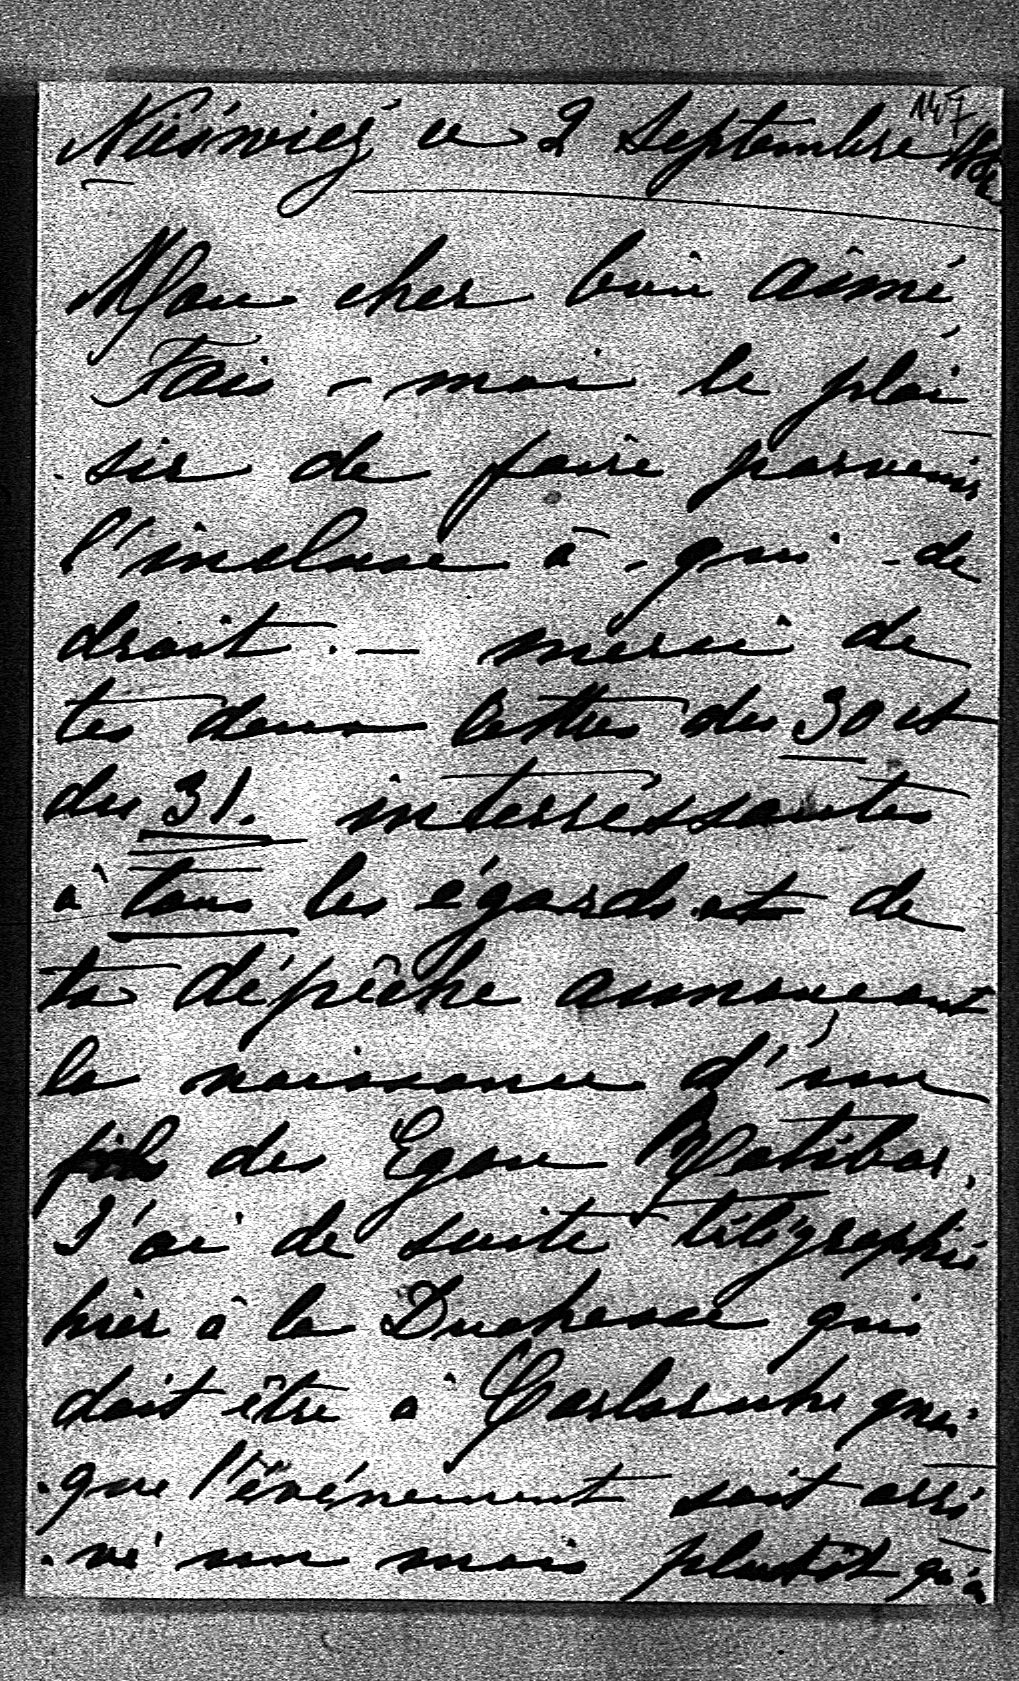 147
Nieświez ce 2 Septembre
Mon cher bien aimé
Fais-moi le plai
sir de faire parvenir
l'incluse à-qui-de
droit. — merci de
tes deux lettres du 30 et
du 31. interréssantes
à tous les égards et de
ta dépêche annonceant
la naissance d'un
fils des Egon Ratibor.
J'ai de suite télégraphié
hier à la Duchesse qui
doit être à Carlsruhe quoi
que l'événement soit arri
vé un mois plutôt qu'on